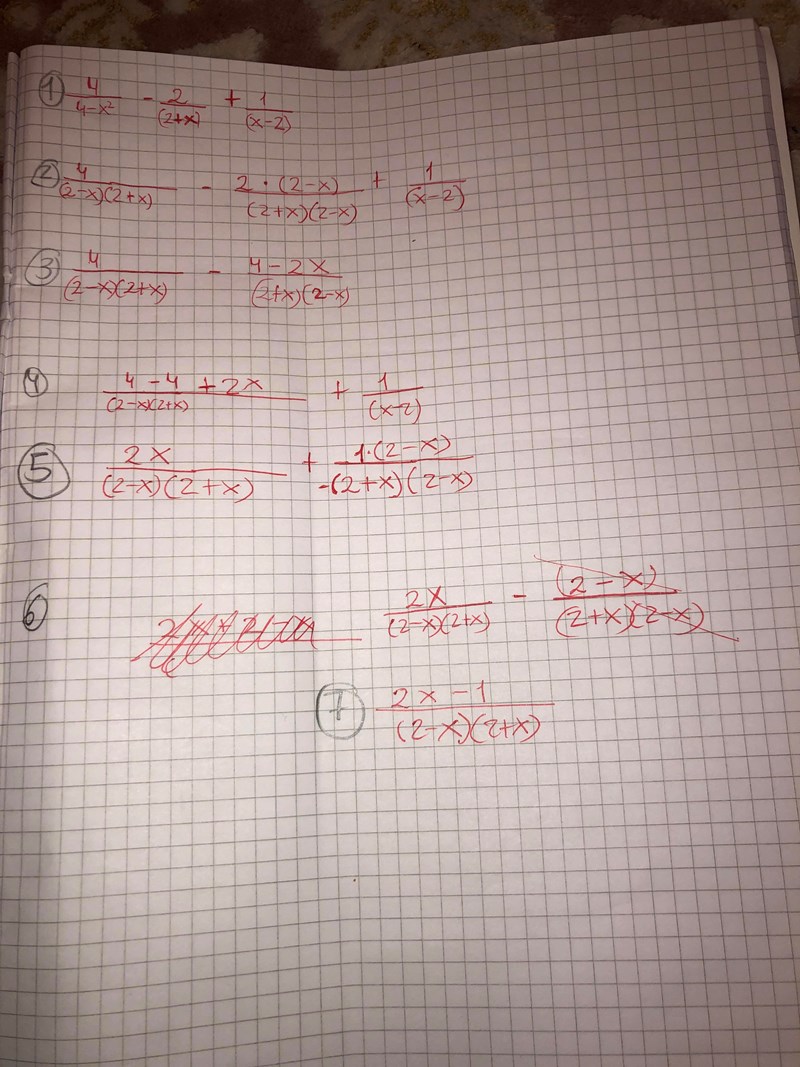 ① 4/(4-x²) - 2/(2+x) + 1/(x-2)
② 4/((2-x)(2+x)) - (2·(2-x))/((2+x)(2-x)) + 1/(x-2)
③ 4/((2-x)(2+x)) - (4-2x)/((2+x)(2-x))
④ (4-4+2x)/((2-x)(2+x)) + 1/(x-2)
⑤ 2x/((2-x)(2+x)) + (1·(2-x))/(-(2+x)(2-x))
⑥ 2x/((2-x)(2+x)) - (2-x)/((2+x)(2-x))
⑦ (2x-1)/((2-x)(2+x))